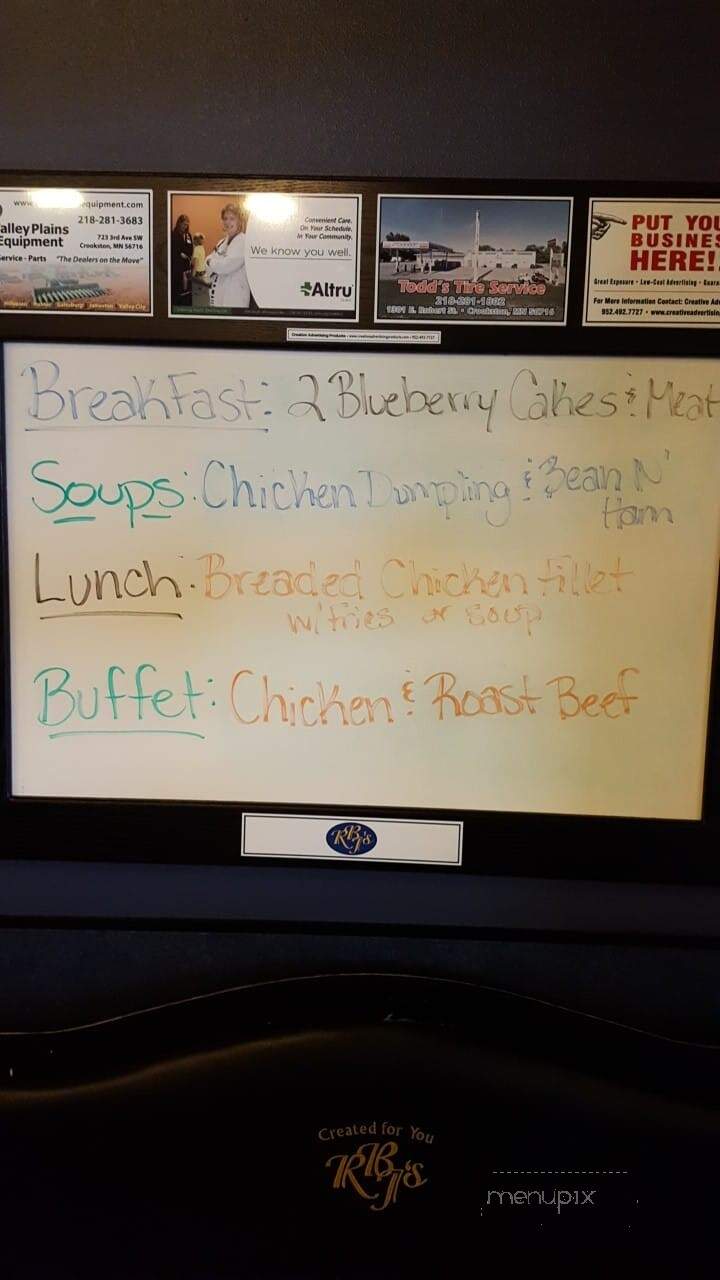 www. equipment.com
218-281-3683
alley Plains
Equipment
723 3rd Ave SW
Crookston, MN 56716
ervice - Parts "The Dealers on the Move"
Convenient Care.
On Your Schedule.
In Your Community.
We know you well.
Altru
Todd's Tire Service
1301 E. Robert St. • Crookston, MN 56716
PUT YOU
BUSINES
HERE!
Great Exposure • Low-Cost Advertising • Guara
For More Information Contact: Creative Ad
952.492.7727 • www.creativeadvertisin
Creative Advertising Products • www.creativeadvertisingproducts.com • 952.492.7727
BreakFast: 2 Blueberry Cakes & Meat
Soups: Chicken Dumpling & Bean N'
Ham
Lunch: Breaded Chicken fillet
w/fries or soup
Buffet: Chicken & Roast Beef
RBJ's
Created for You
RBJ's
menupix